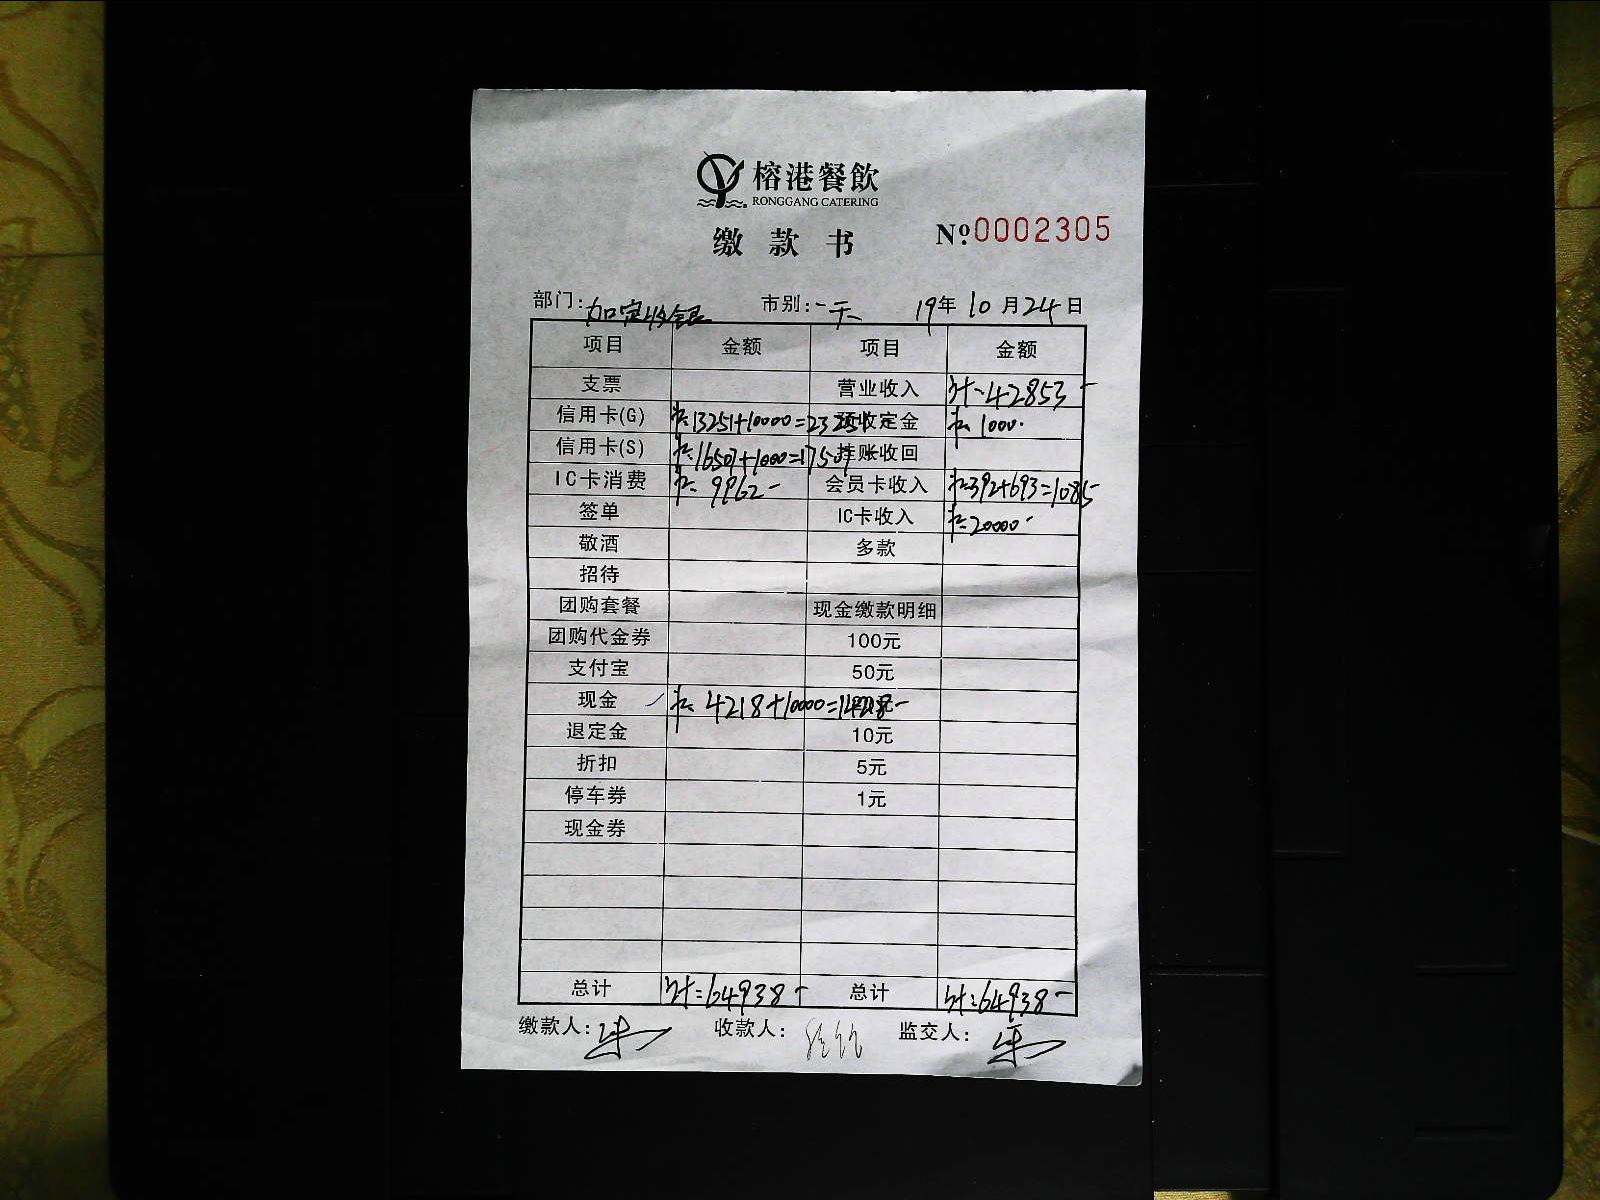 榕港餐飲
RONGGANG CATERING
缴款书 №0002305
部门: 加定收银 市别: 一天 19年10月24日
项目 金额 项目 金额
支票 营业收入 计: 42853-
信用卡(G) 13251+10000=23251- 预收定金 1000-
信用卡(S) 16507+1000=17507 挂账收回
IC卡消费 9962- 会员卡收入 392+693=1085-
签单 IC卡收入 20000-
敬酒 多款
招待
团购套餐 现金缴款明细
团购代金券 100元
支付宝 50元
现金 4218+10000=14218-
退定金 10元
折扣 5元
停车券 1元
现金券
总计 计: 64938- 总计 计: 64938-
缴款人: 收款人: 监交人: